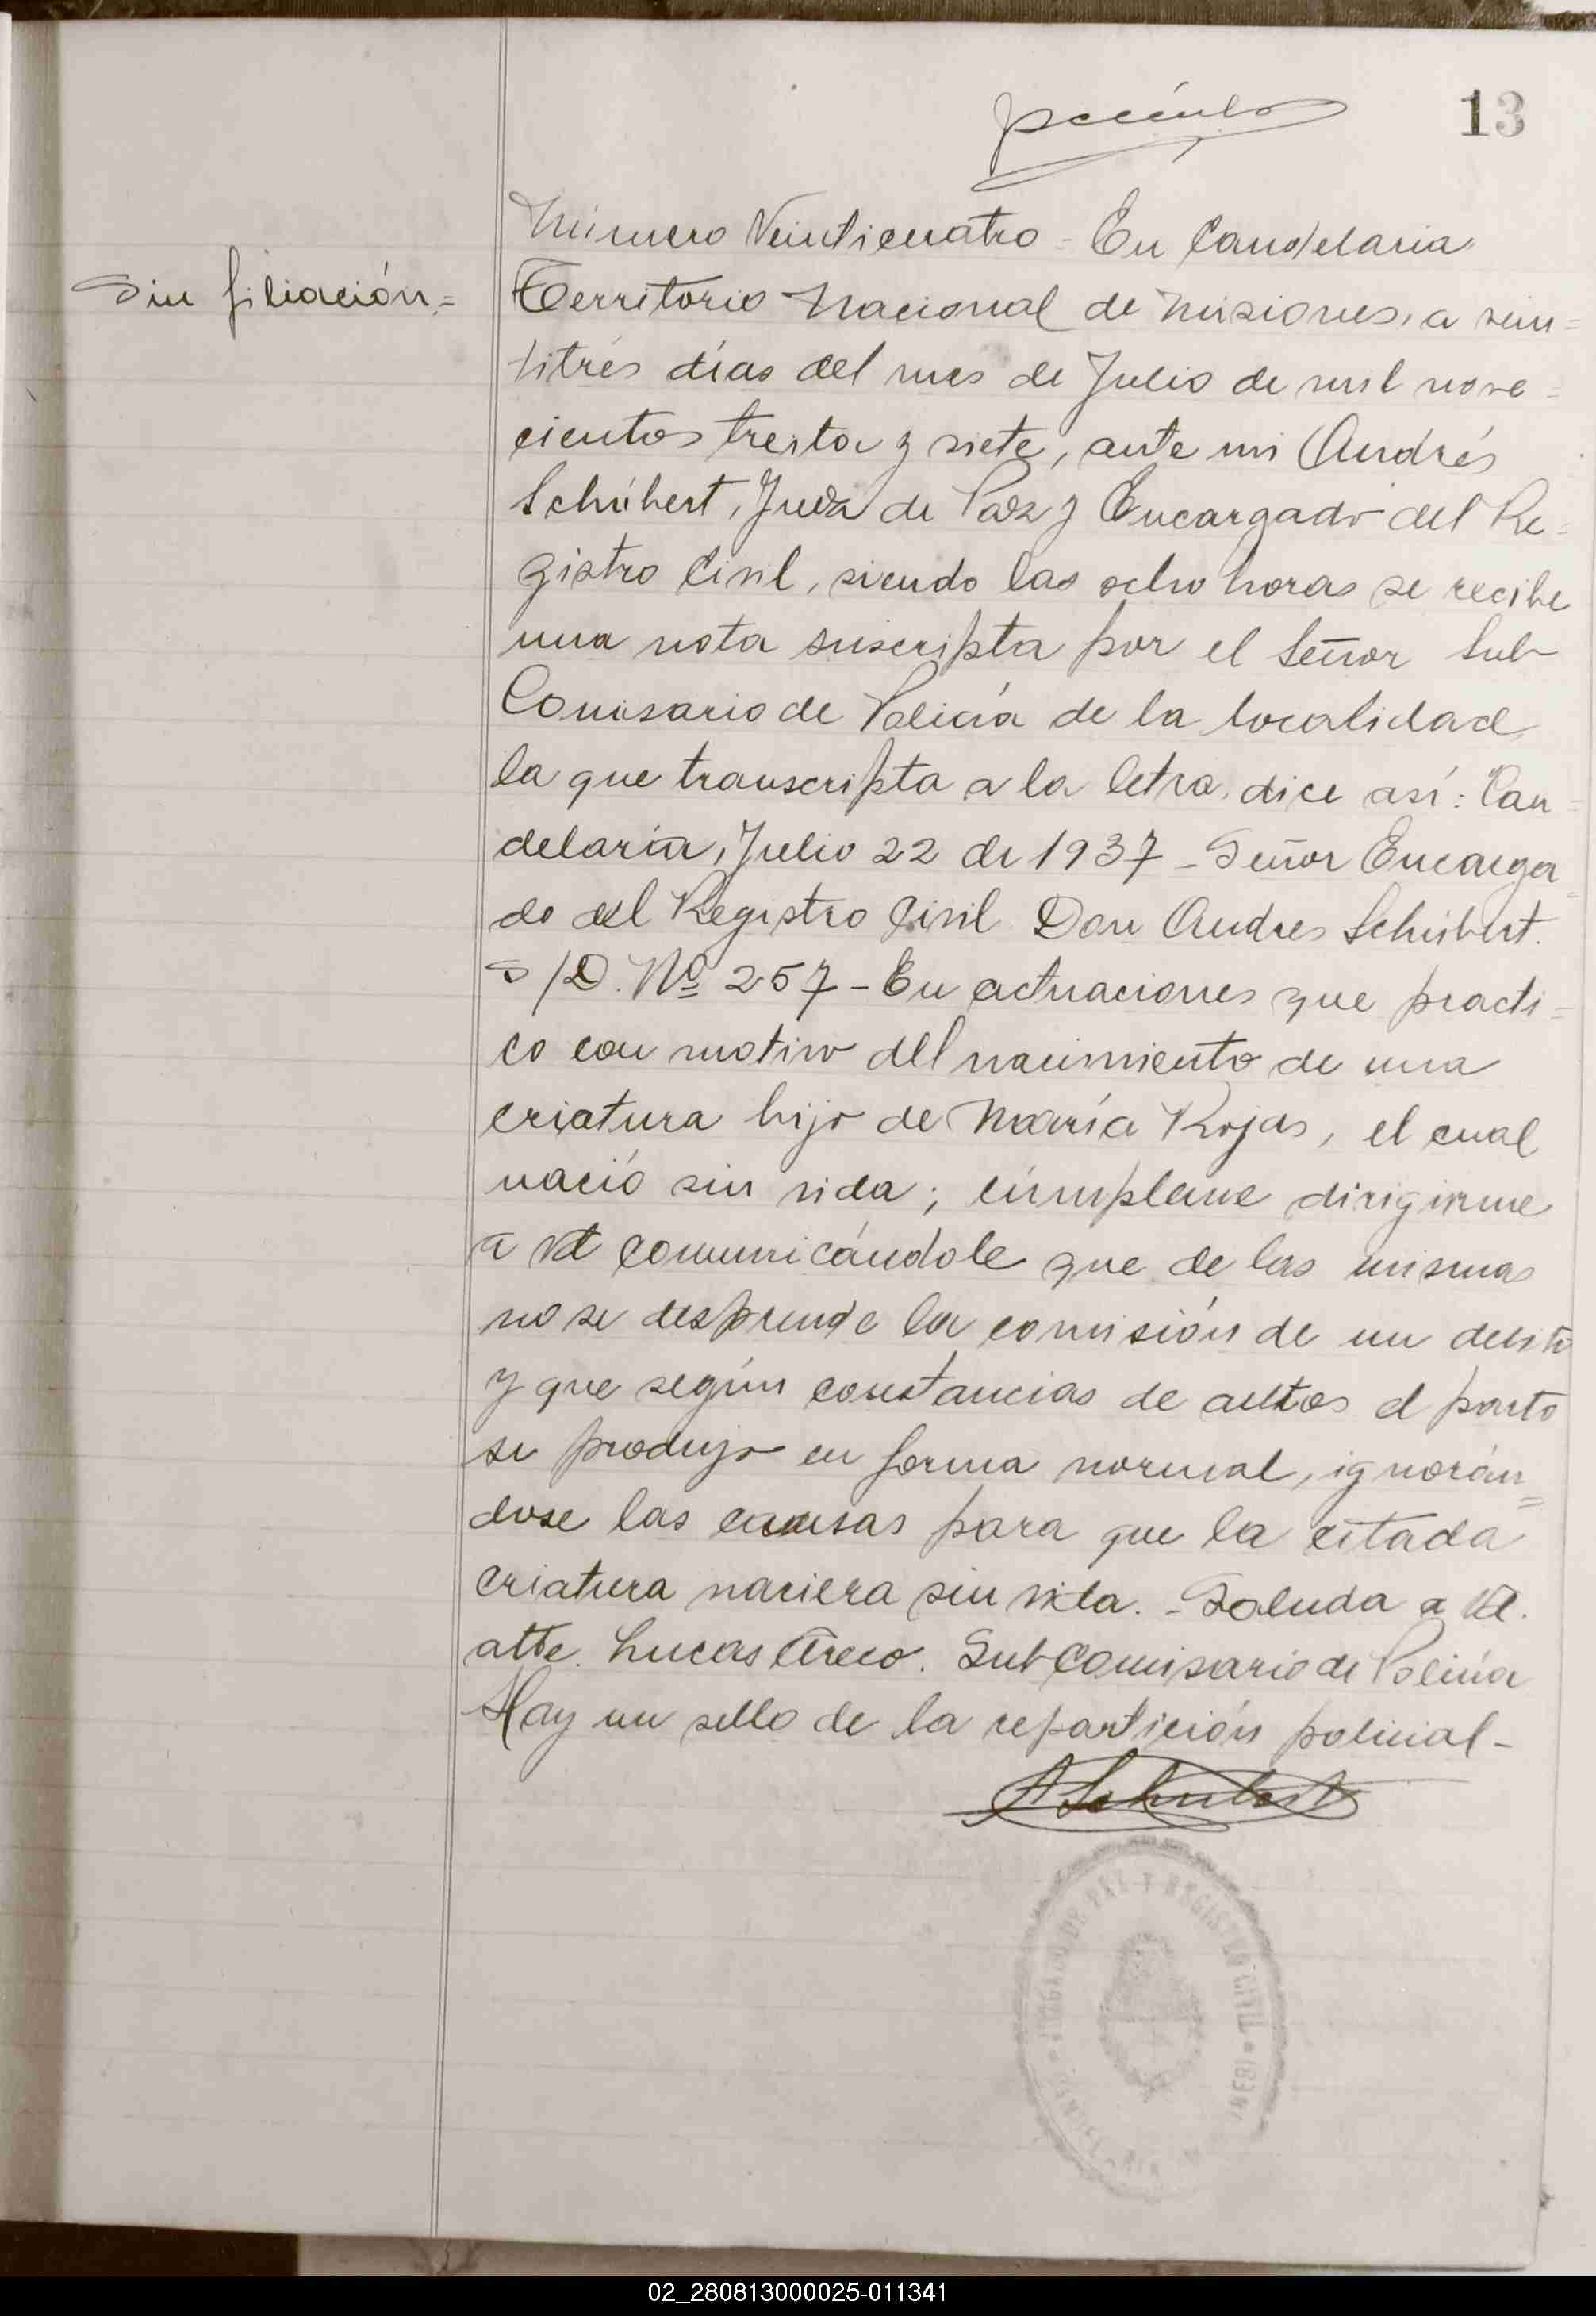 13
Sin filiación =
Número Veinticuatro = En Candelaria
Territorio Nacional de Misiones, a vein=
titrés días del mes de Julio de mil nove=
cientos treita y siete, ante mi Andrés
Schübert, Juez de Paz y Encargado del Re=
gistro Civil, siendo las ocho horas se recibe
una nota suscripta por el Señor Sub-
Comisario de Policía de la localidad
la que transcripta a la letra, dice así: "Can=
delaria, Julio 22 de 1937 - Señor Encarga=
do del Registro Civil Don Andres Schübert.
S/D. Nº 257 - En actuaciones que practi=
co con motivo del nacimiento de una
criatura hijo de María Rojas, el cual
nació sin vida; cúmpleme dirigirme
a Vd comunicándole que de las mismas
no se desprende la comisión de un delito
y que según constancias de autos el parto
se produjo en forma normal, ignorán=
dose las causas para que la citada
criatura naciera sin vida. - Saluda a Vd.
atte. Lucas Areco. Sub Comisario de Policía
Hay un sello de la repartición policial -
A Schubert
JUZGADO DE PAZ Y REGISTRO CIVIL
02_280813000025-011341